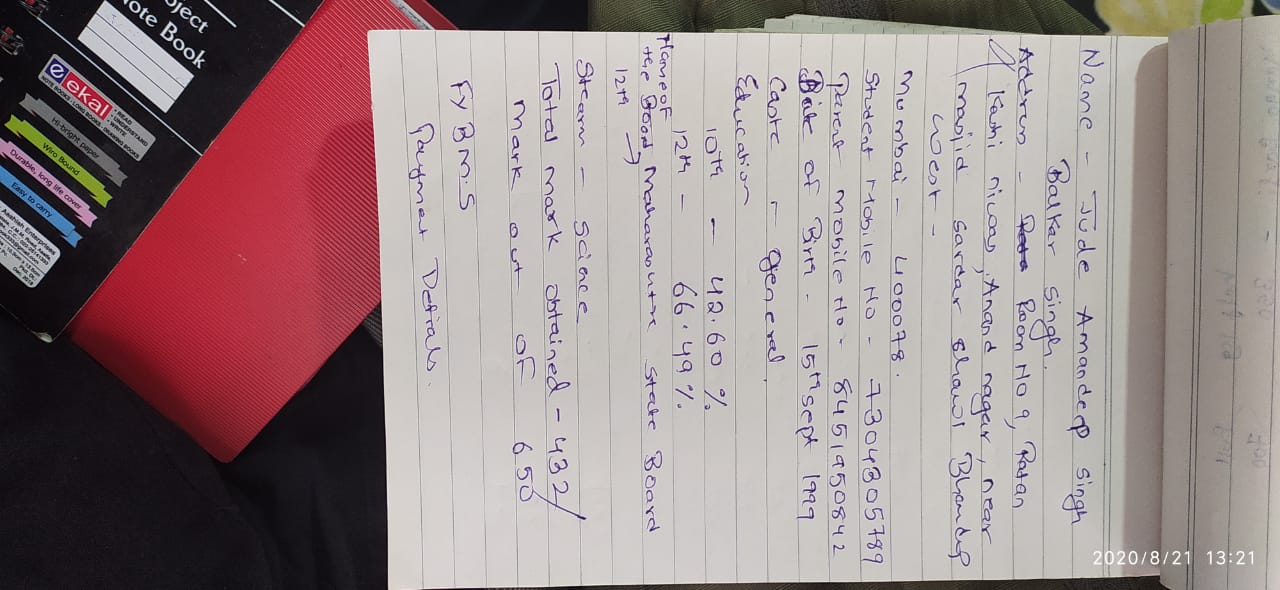 2020/8/21 13:21
Name - Jude Amandeep Singh
Balkar Singh.
Address - Room No 9, Ratan
Kashi niwas, Anand nagar, near
masjid Sardar Bhandup
West -
Mumbai - 400078.
Student Mobile No - 7304305789
Parent mobile No - 8451950842
Date of Birth - 15th sept 1999
Caste - general.
Education
10th - 42.60 %
12th - 66.49 %.
Name of
the Board, Maharashtra State Board
12th →
Stearm - science
Total mark obtained - 432/
mark out of 650
FY B M.S
Payment Detials.
oject
ote Book
ekal
READ
UNDERSTAND
WRITE
NOTE BOOKS • LONG BOOKS • DRAWING BOOKS
Hi-bright paper
Wiro Bound
Durable, long life cover
Easy to carry
Aashish Enterprises